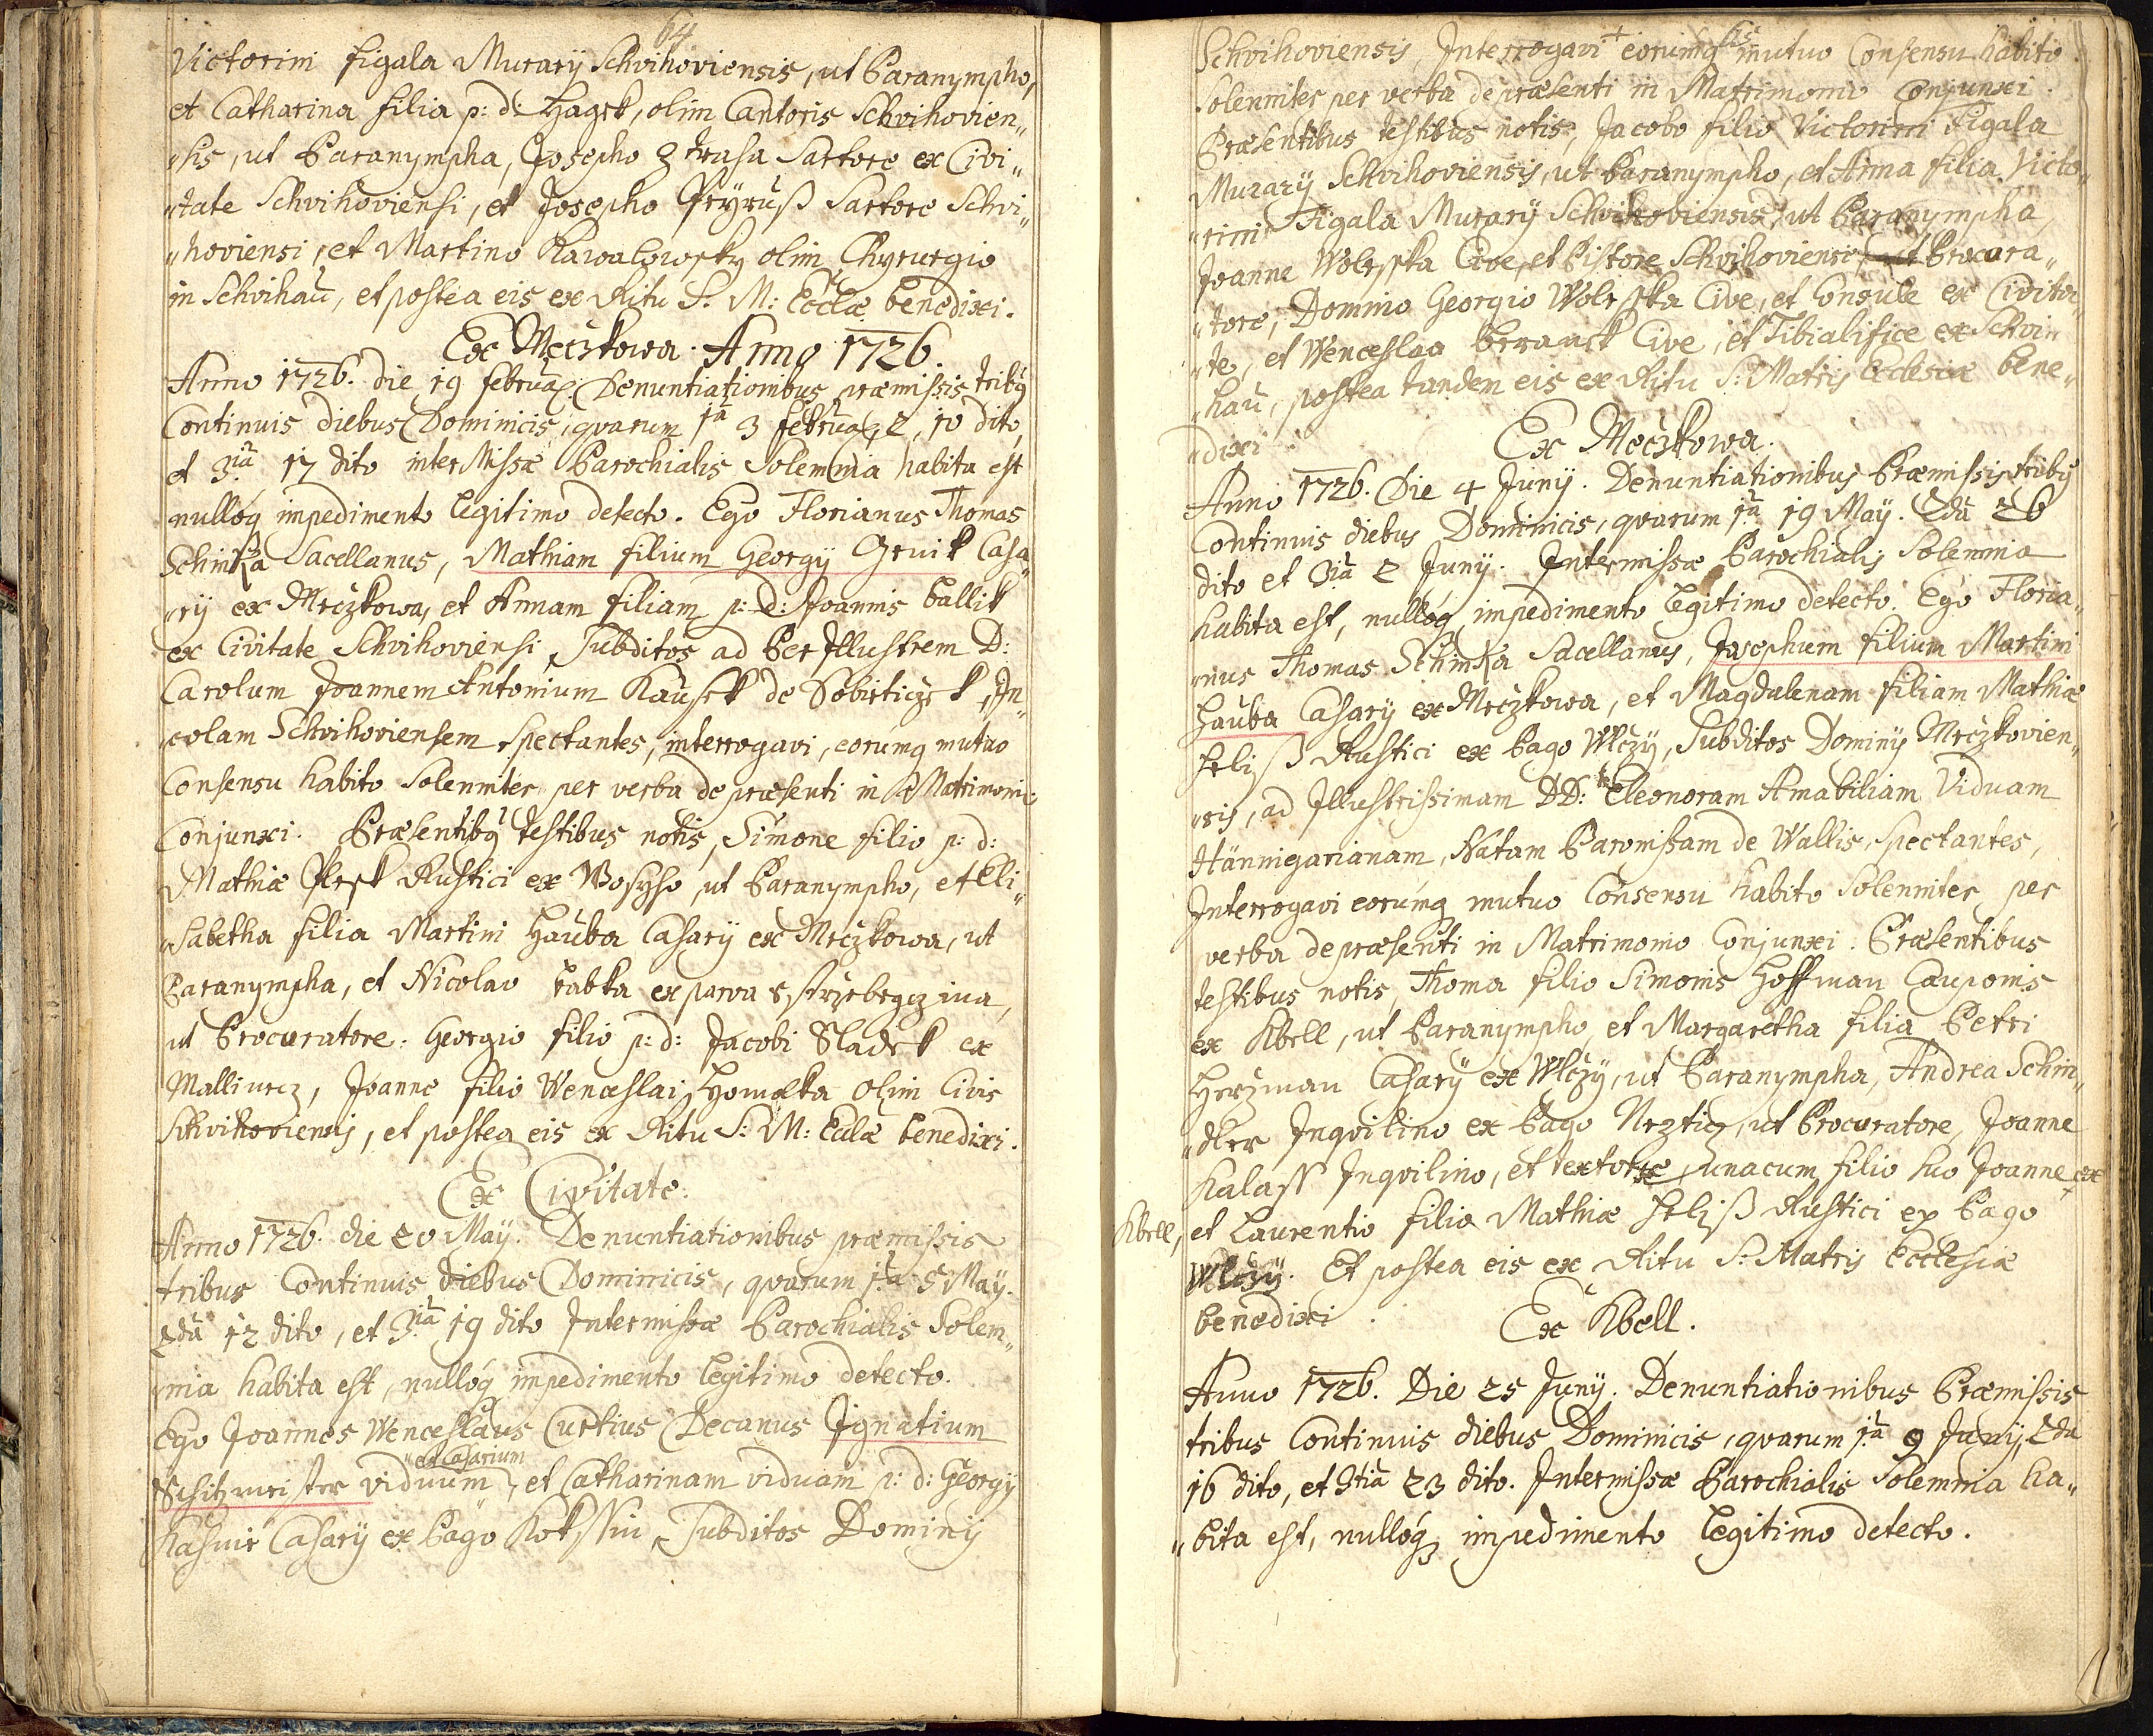 64
Victorini Figala Murarÿ Schvihoviensis, ut Paranympho,
et Catharina filia p: d: Hagek, olim Cantoris Schvihovien„
„sis, ut Paranympha, Josepho Ztrasa Sartore ex Civi„
„tate Schvihoviensi, et Josepho Sartore Schvi„
„hoviensi, et Martino Kawalowsky olim Chyrurgio
in Schvihau, et postea eis ex Ritu S: M: Ecclæ benedixi.
Ex Mečzkowa. Anno 1726.
Anno 1726. die 19 februar: Denuntiationibus præmissis tribq
Continuis diebus Dominicis, quarum 1a 3 februar, 2, 10 dito,
et 3tia 17 dito inter Missæ Parochialis Solemnia habita est
nulloq impedimento legitimo detecto. Ego Florianus Thomas
Schinka Sacellanus, Mathiam filium Georgÿ Gruik Casa„
„rÿ ex Mrčzkowa, et Annam filiam p: d: Joannis Ballik
ex Civitate Schvihoviensi, Subditos ad Per Illustrem D:
Carolum Joannem Antonium Kausek de Sobieticzek, In„
„colam Schvihoviensem Spectantes, interrogavi, eorumq mutuo
Consensu habito Solenniter per verba de præsenti in Matrimoni:
Conjunxi. Præsentibq testibus notis, Simone filio p: d:
Mathiæ Rustici ex Wosyho, ut Paranympho, et Eli„
„sabetha filia Martini Hauba Casarÿ ex Mrčzkowa, ut
Paranympha, et Nicolao Babka ex parva
ut Procuratore. Georgio filio p: d: Jacobi Sladek ex
Malliurcz, Joanne filio Wenceslai Homolka olim Civis
Schvihoviensis, et postea eis ex Ritu S: M: Eclæ benedixi.
Ex Civitate.
Anno 1726. die 20 Maÿ. Denuntiationibus præmissis
tribus Continuis diebus Dominicis, quarum 1a 5 Maÿ.
2da 12 dito, et 3tia 19 dito Intermissæ Parochialis Solem„
„nia habita est, nulloq impedimento legitimo detecto.
Ego Joannes Wenceslaus Curtius Decanus Ignatium
„et Casarium
Schitzmeister viduum, et Catharinam viduam p: d: Georgÿ
Casarÿ ex Pago Kokssin, Subditos Dominÿ
Schvihoviensis, Interrogavi + eorumq mutuo Consensu habito
Solenniter per verba de præsenti in Matrimonio Conjunxi.
Præsentibus testibus notis, Jacobo filio Victorini Figala
Murarÿ Schvihoviensis, ut Paranympho, et Anna filia Victo„
„rini Figala Murarÿ Schvihoviensis, ut Paranympha,
Joanne Wolesska Cive, et Pistore Schvihoviensi, ut Procura„
„tore, Domino Georgio Wolesska Cive, et Consule ex Civita„
„te, et Wenceslao Beranek Cive, et Tibialifice ex Schvi„
„hau, postea tandem eis ex Ritu S: Matris Ecclesiæ bene„
„dixi
Ex Mečzkowa.
Anno 1726. Die 4 Junÿ. Denuntiationibus Præmissis tribq
Continuis diebus Dominicis, quarum 1a 19 Maÿ. 2da 26
dito et 3tia 2 Junÿ. Intermissæ Parochialis Solemnia
habita est, nulloq, impedimento legitimo detecto. Ego Floria„
„nus Thomas Schinka Sacellanus, Josephum filium Martini
Hauba Casarÿ ex Mrčzkowa, et Magdalenam filiam Mathiæ
Rustici ex Pago Wlčzÿ, Subditos Dominÿ Mrčzkovien„
„sis, ad Illustrissimam DD: Eleonoram Amabiliam Viduam
Hännigarianam, Natam Baronissam de Wallis, Spectantes,
Interrogavi eorumq mutuo Consensu habito Solenniter per
verba de præsenti in Matrimonio Conjunxi. Præsentibus
testibus notis, Thoma filio Simonis Hoffman Cauponis
ex Kbell, ut Paranympho, et Margaretha filia Petri
Herzman Casarÿ ex Wlčzÿ, ut Paranympha, Andrea Schin„
„dler Inquilino ex Pago Nezticz, ut Procuratore, Joanne
Kalass Inquilino, et textore, unacum filio suo Joanne, ex
Kbell, et Laurentio filio Mathiæ Rustici ex Pago
Wlčzÿ. Et postea eis ex Ritu S: Matris Ecclesiæ
benedixi.
Ex Kbell.
Anno 1726. Die 25 Junÿ. Denuntiationibus Præmissis
tribus Continuis diebus Dominicis, quarum 1a 9 Junÿ, 2da
16 dito, et 3tia 23 dito. Intermissæ Parochialis Solemnia ha„
„bita est, nulloq, impedimento legitimo detecto.